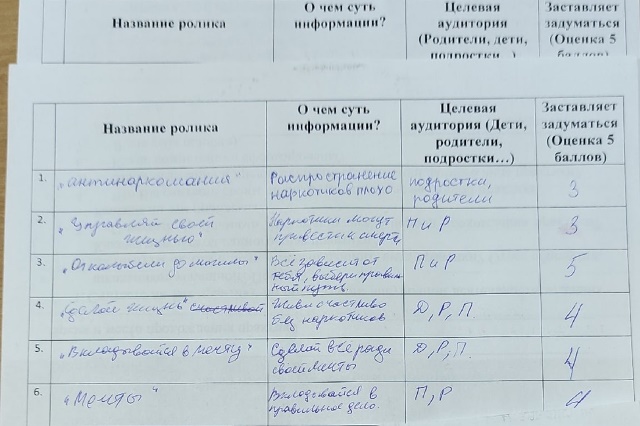 Название ролика
О чем суть
информации?
Целевая
аудитория
(Родители, дети,
подростки...)
Заставляет
задуматься
(Оценка 5
баллов)
Название ролика
О чем суть
информации?
Целевая
аудитория (Дети,
родители,
подростки…)
Заставляет
задуматься
(Оценка 5
баллов)
1.
„антинаркомания"
Распространение
наркотиков плохо
подростки,
родители
3
2.
„Управляй своей
жизнью"
Наркотики могут
привести к смерти
П и Р
3
3.
„От колыбели до могилы"
Всё зависит от
тебя, выбери правиль
ный путь.
П и Р
5
4.
„Сделай жизнь" счастливой
Живи счастливо
без наркотиков
Д, Р, П.
4
5.
„Вкладывайся в мечту"
Сделай все ради
своей мечты
Д, Р, П.
4
6.
„Мечты"
Вкладывайся в
правильное дело.
П, Р
4